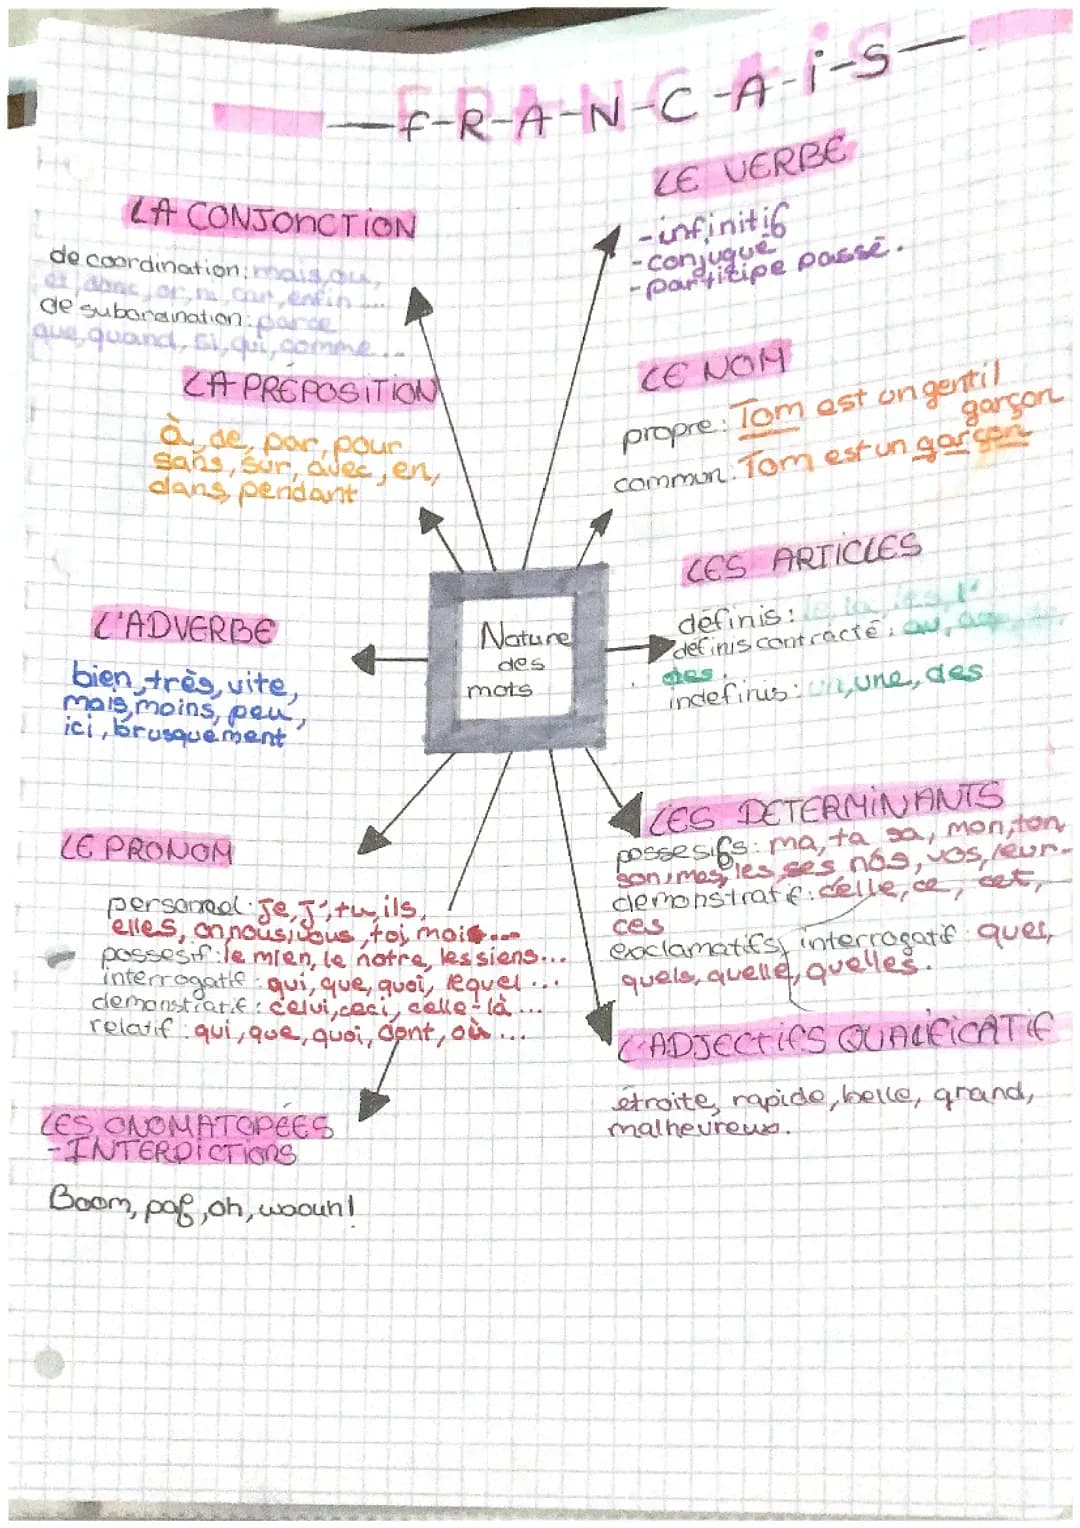 f-R-A-N-C-A-i-S
LA CONJONCTiON
de coordination: mais, ou,
et, donc, or, ni, car, enfin ...
de subordination: parce
que, quand, si, qui, comme...
LA PREPOSITION
à, de, par, pour
sans, sur, avec, en,
dans, pendant
L'ADVERBE
bien, très, vite,
mais, moins, peu,
ici, brusquement
LE PRONOM
personnel: Je, J', tu, ils,
elles, on, nous, vous, toi, moi...
possesif: le mien, le notre, les siens...
interrogatif: qui, que, quoi, lequel...
demonstratif: celui, ceci, celle-là...
relatif: qui, que, quoi, dont, où...
LES ONOMATOPÉES
-INTERDICTIONS
Boom, paf, oh, waouh!
Nature
des
mots
LE VERBE
-infinitif
-conjugué
-participe passé.
LE NOM
propre: Tom est un gentil
garçon
commun: Tom est un garçon
LES ARTICLES
définis: le, la, les, l'
définis contracté: au, aux,
des
indefinis: un, une, des
LES DETERMINANTS
possesifs: ma, ta sa, mon, ton
son, mes, les, ses nos, vos, leur-
demonstratif: celle, ce, cet,
ces
exclamatifs, interrogatif: quel,
quels, quelle, quelles.
L'ADJECTIFS QUALIFICATIF
étroite, rapide, belle, grand,
malheureux.